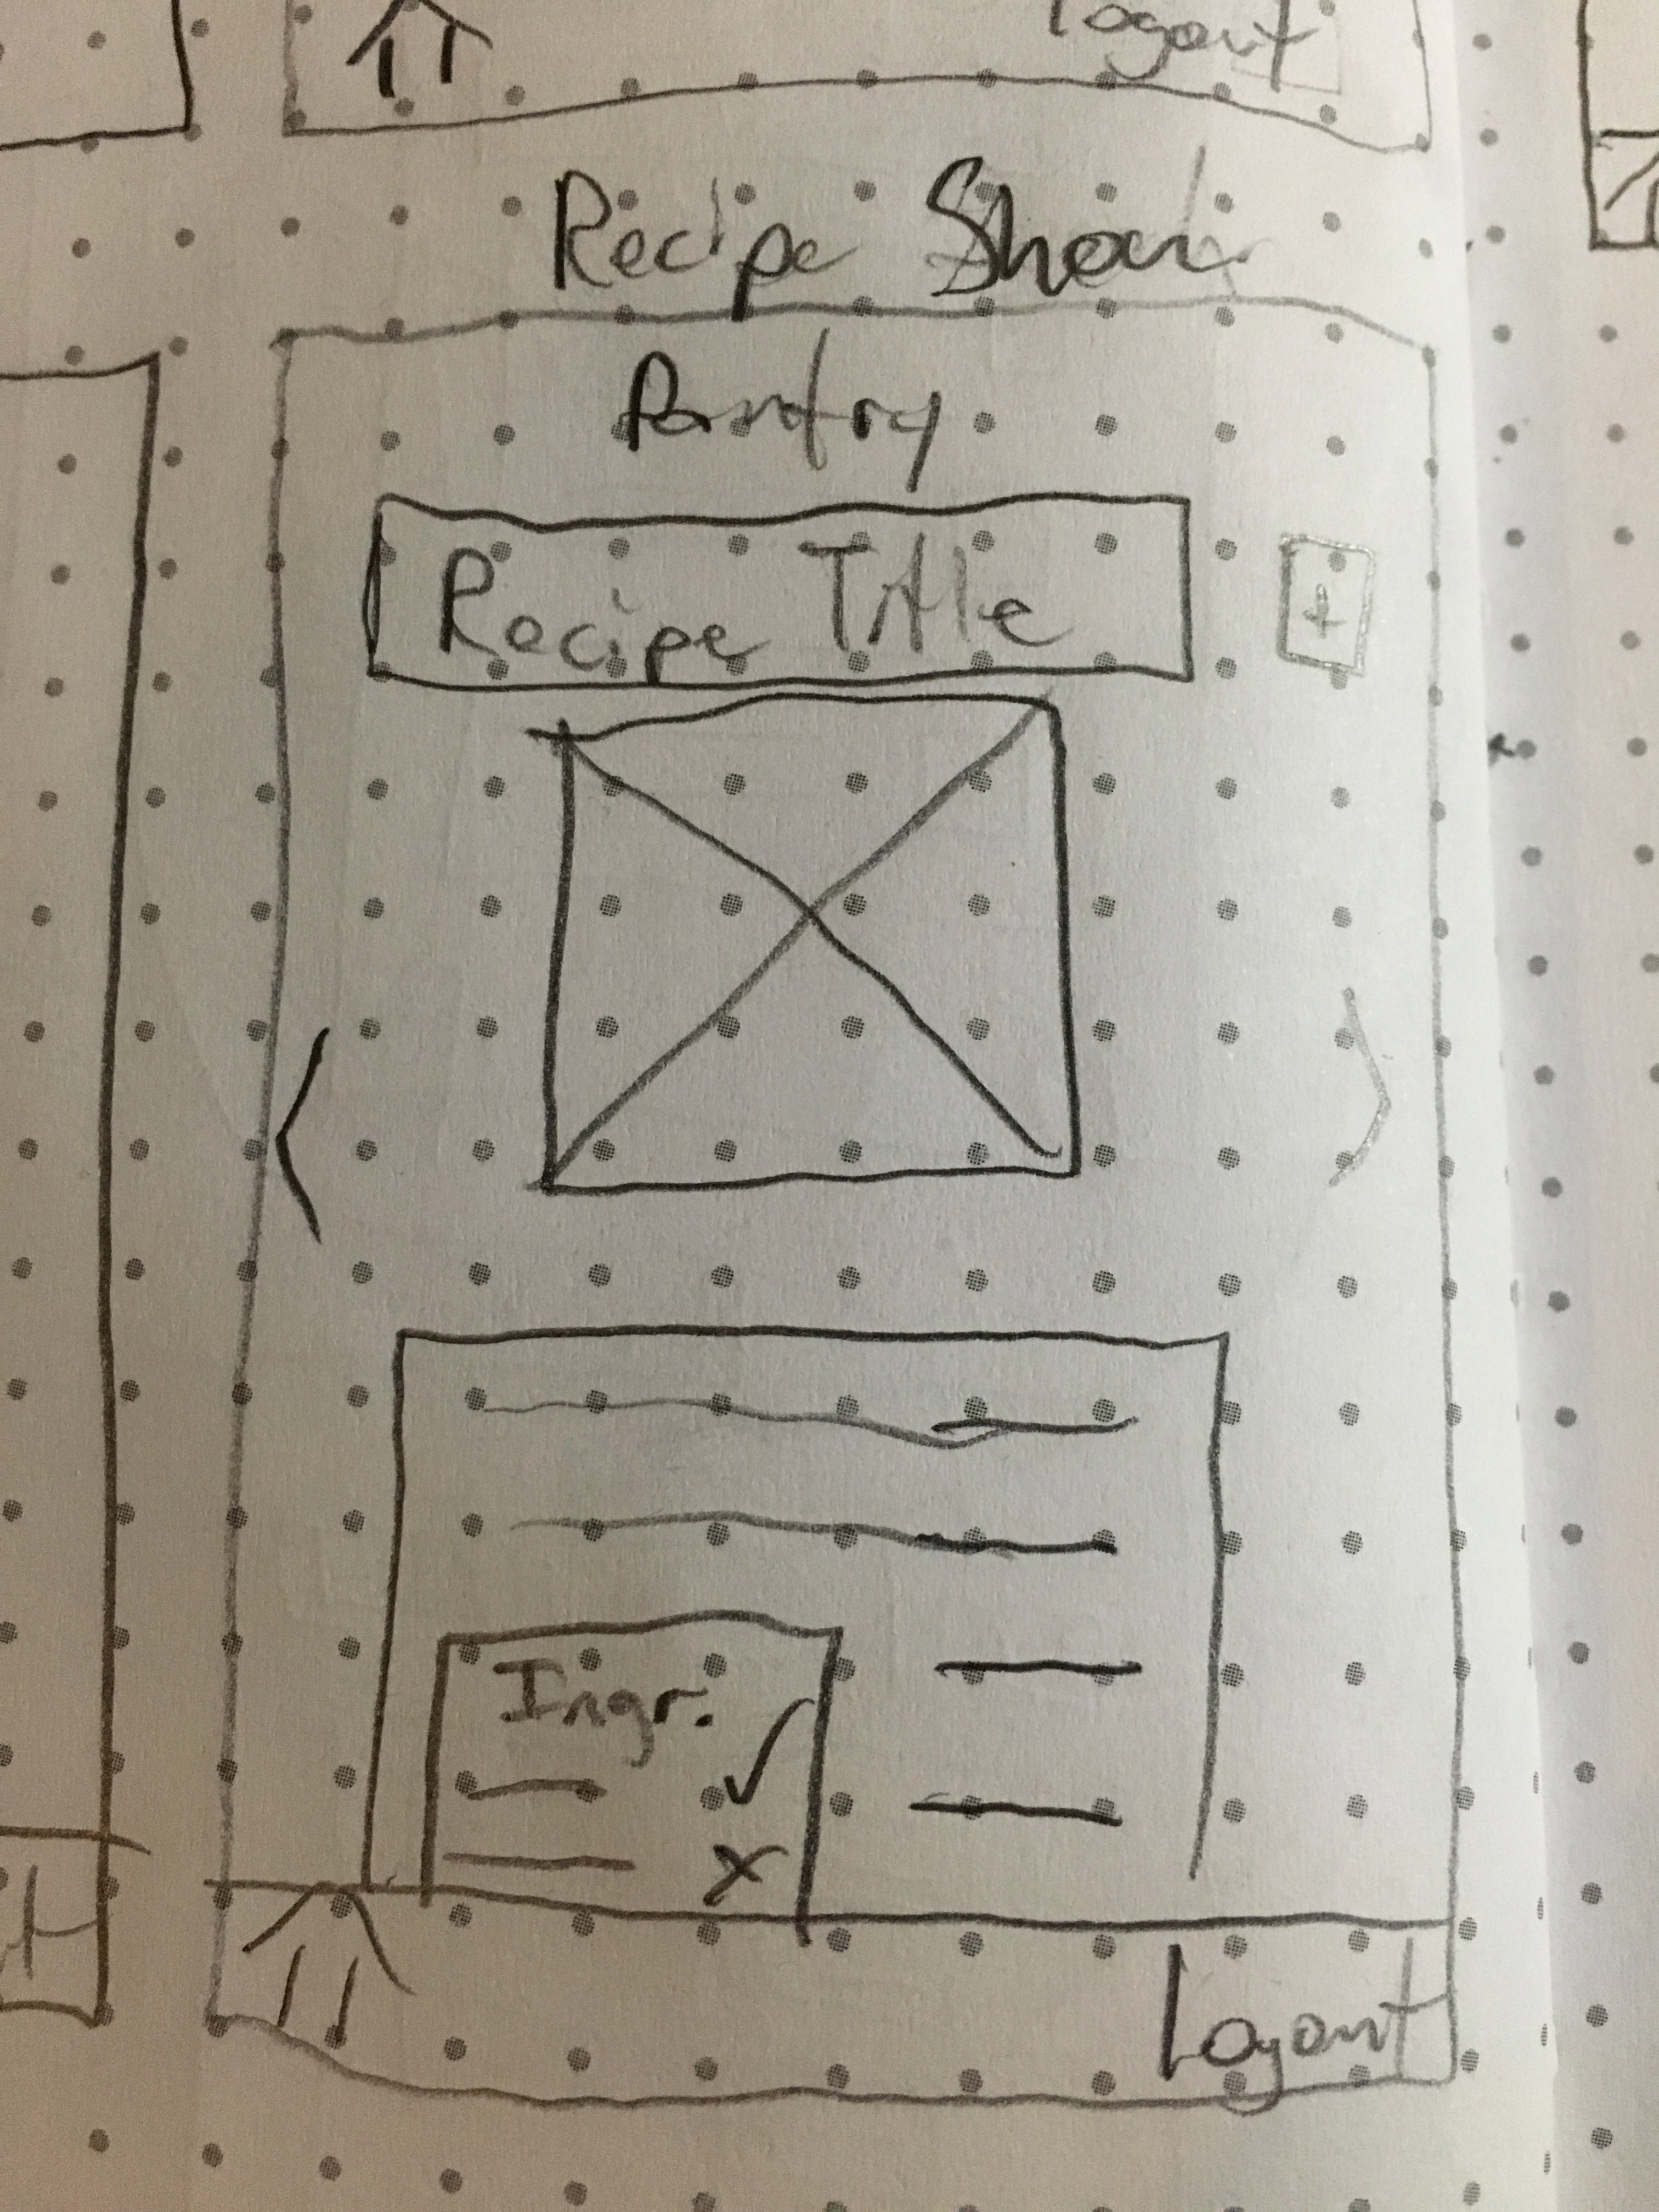 logout
Recipe Show
Pantry
Recipe Title
+
Ingr.
✓
x
Logout